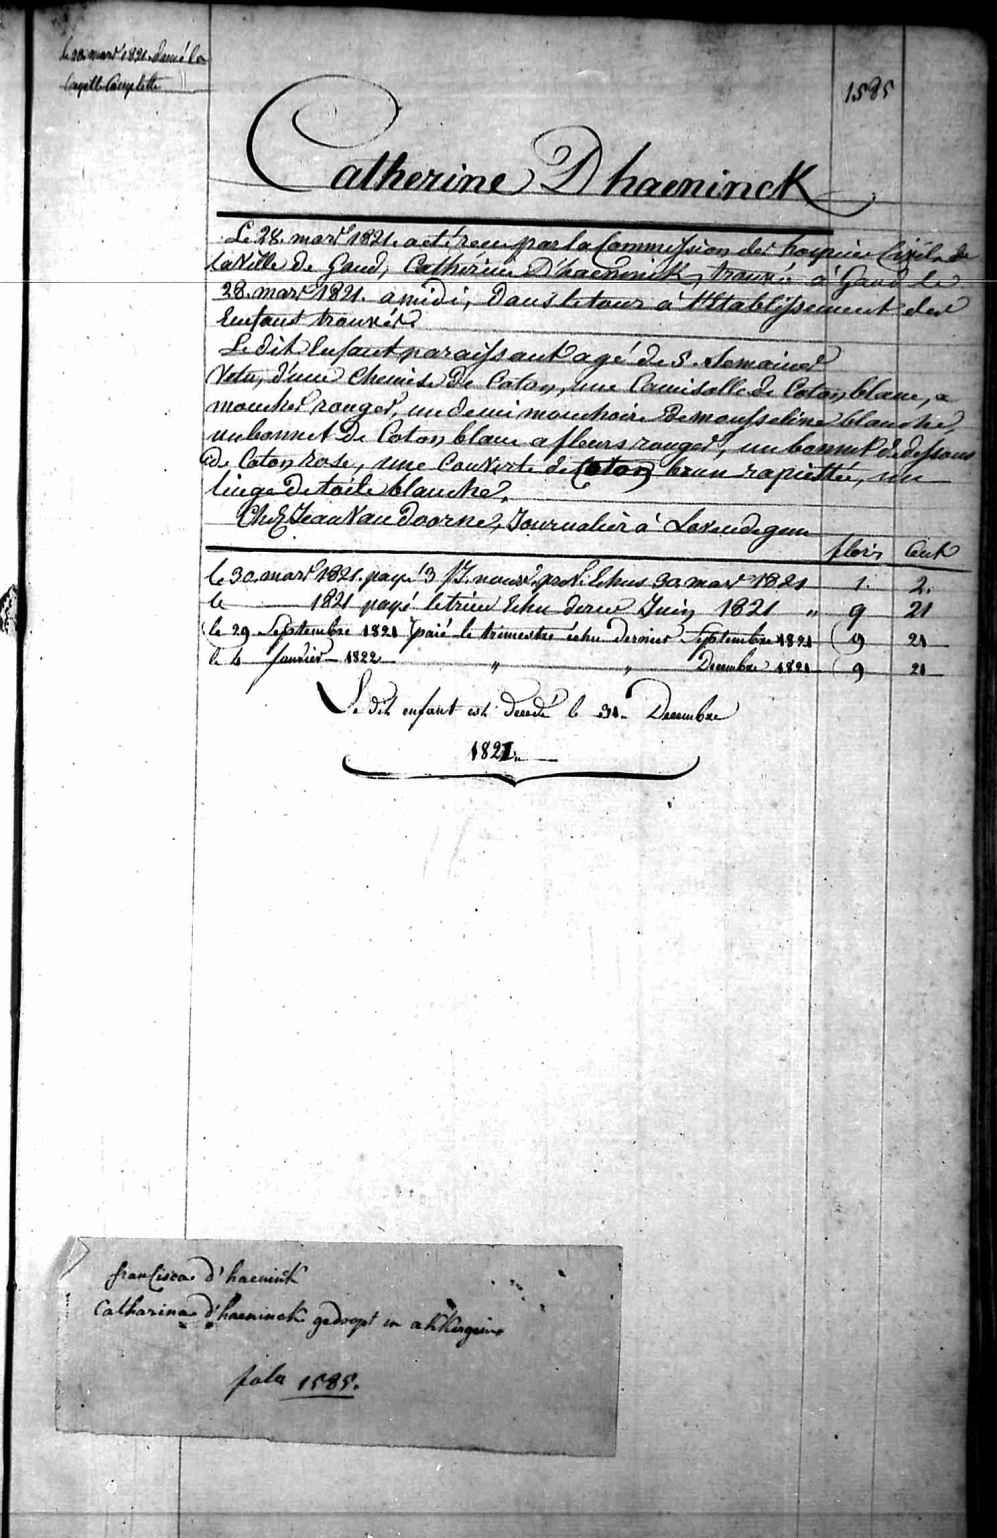 le 30 mars 1821 donné la
layette Complette
1585
Catherine Dhaeninck
Le 28. mars 1821. a eté recue par la Commission des hospices Civils de
la Ville de Gand, Cathérine D'haeninck, trouvée à Gand le
28. mars 1821. a midi, dans le tour à l'Etablissement des
Enfants trouvés.
Le dit Enfant paraissant agé de 5. Semaines
Vetu, d'une Chemise de Coton, une Camisolle de Coton blanc, a
mouches rouges, un demi mouchoir de mousseline blanche,
un bonnet de Coton blanc a fleurs rouges, un bonnet de dessous
de Coton rose, une Couverte de Coton brun rapiettée, un
linge de toile blanche.
Chez Jean Van doorne, Journalier à Lovendegem
flor's Cent
le 30. mars 1821. payé 3 Echus 30 mars 1821 1. 2.
le 1821 payé le trim Echu dernr Juin 1821 " 9 21
le 29 Septembre 1821 paié le trimestre échu dernier Septembre 1821 9 21
le 4 Janvier 1822 " " Decembre 1821 9 21
Le dit enfant est decedé le 31. Decembre
1821.
francisca d'haeninck
Catharina d'haeninck gedoopt in
folio 1585.